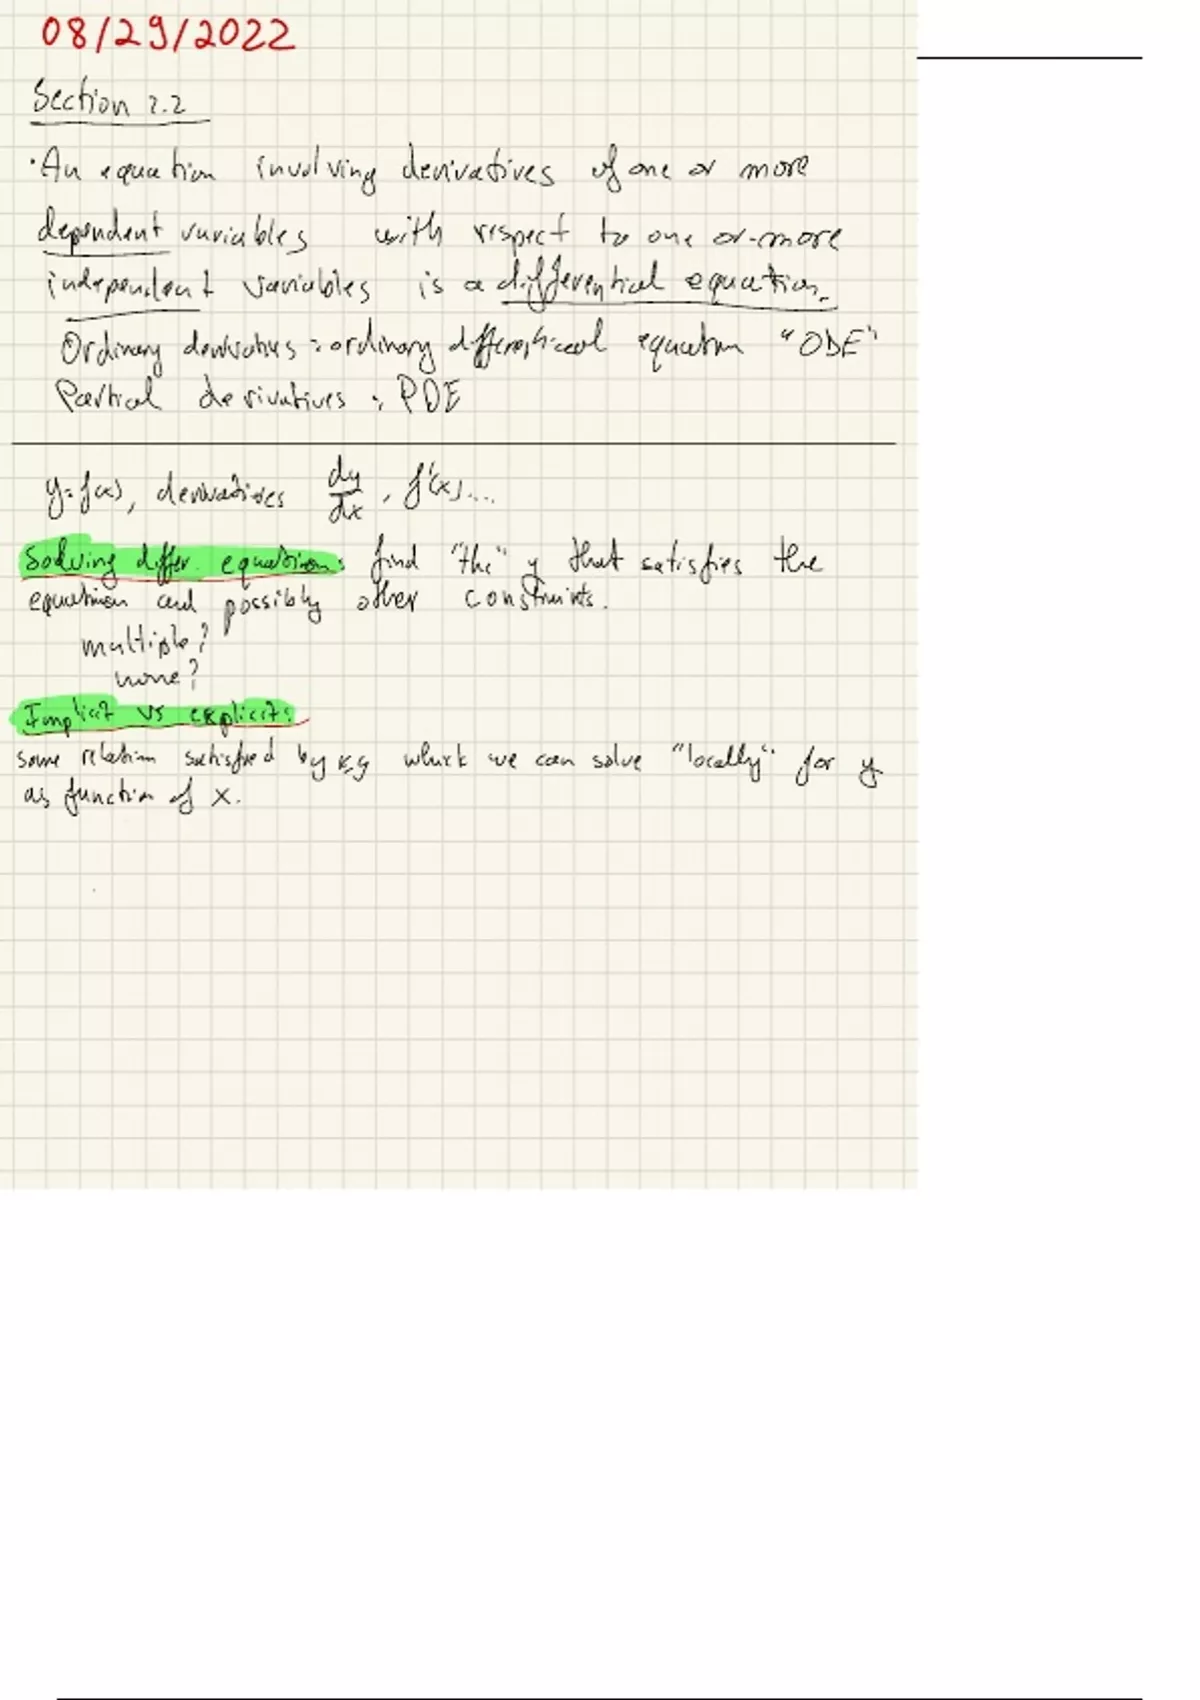 08/29/2022
Section 2.2
·An equation involving derivatives of one or more
dependent variables with respect to one or more
independent variables is a differential equation.
Ordinary derivatives: ordinary differential equation "ODE"
Partial derivatives: PDE
y=f(x), derivatives dy/dx, f'(x)....
Solving differ. equation: find "the" y that satisfies the
equation and possibly other constraints.
multiple?
none?
Implicit vs explicit:
some relation satisfied by x,y which we can solve "locally" for y
as function of x.